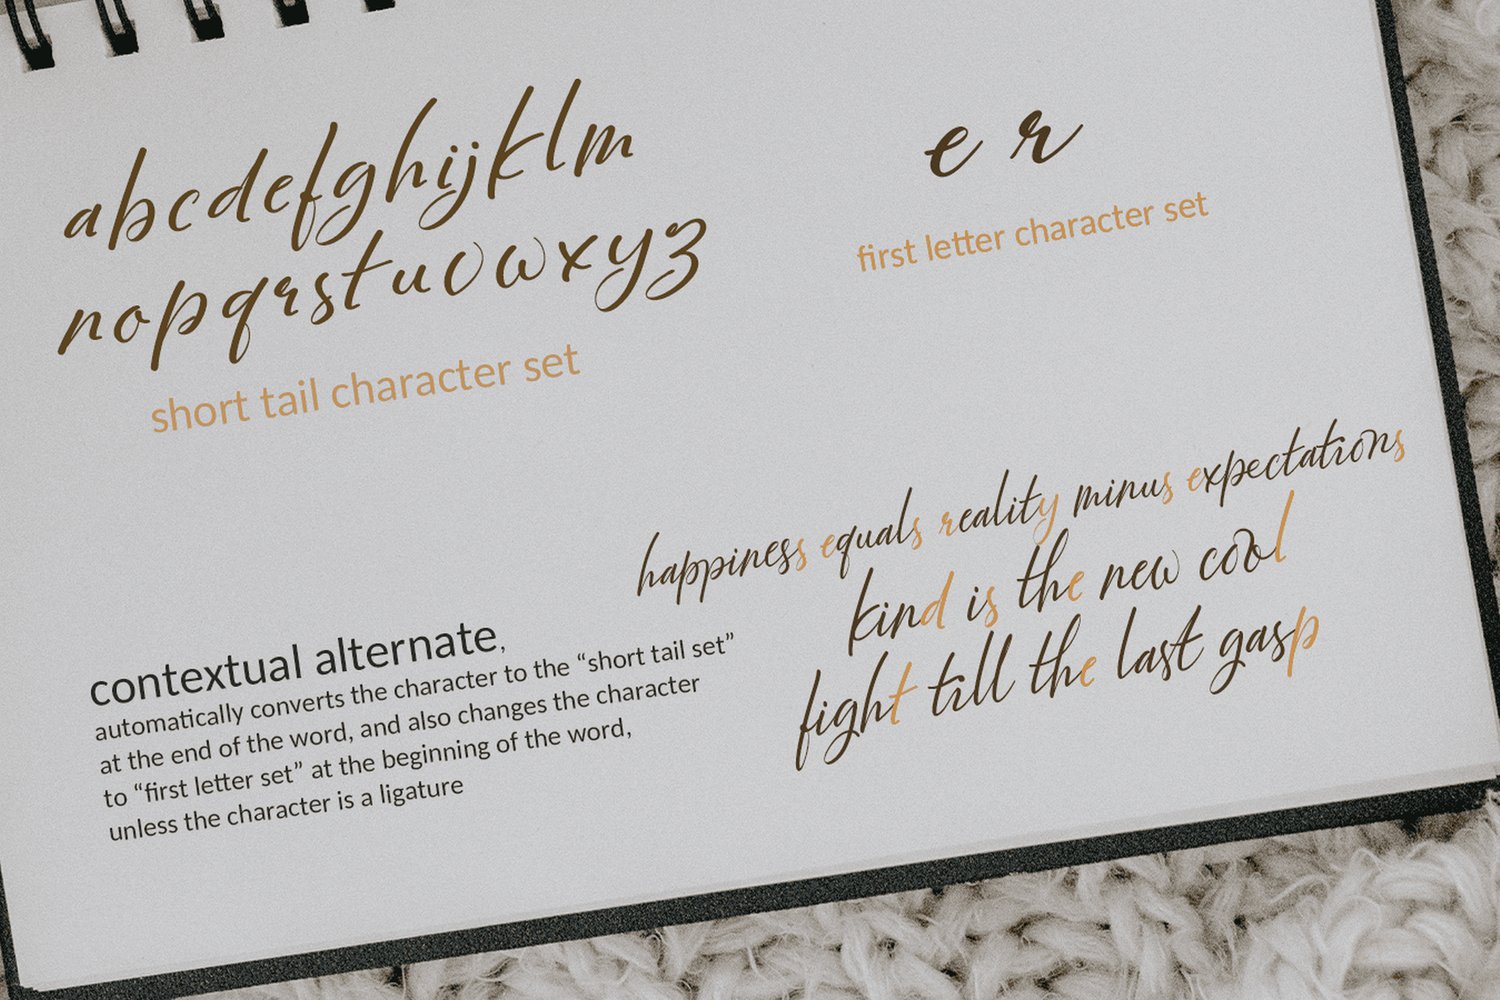 abcdefghijklm
nopqrstuvwxyz
short tail character set
e r
first letter character set
happiness equals reality minus expectations
kind is the new cool
fight till the last gasp
contextual alternate,
automatically converts the character to the “short tail set”
at the end of the word, and also changes the character
to “first letter set” at the beginning of the word,
unless the character is a ligature